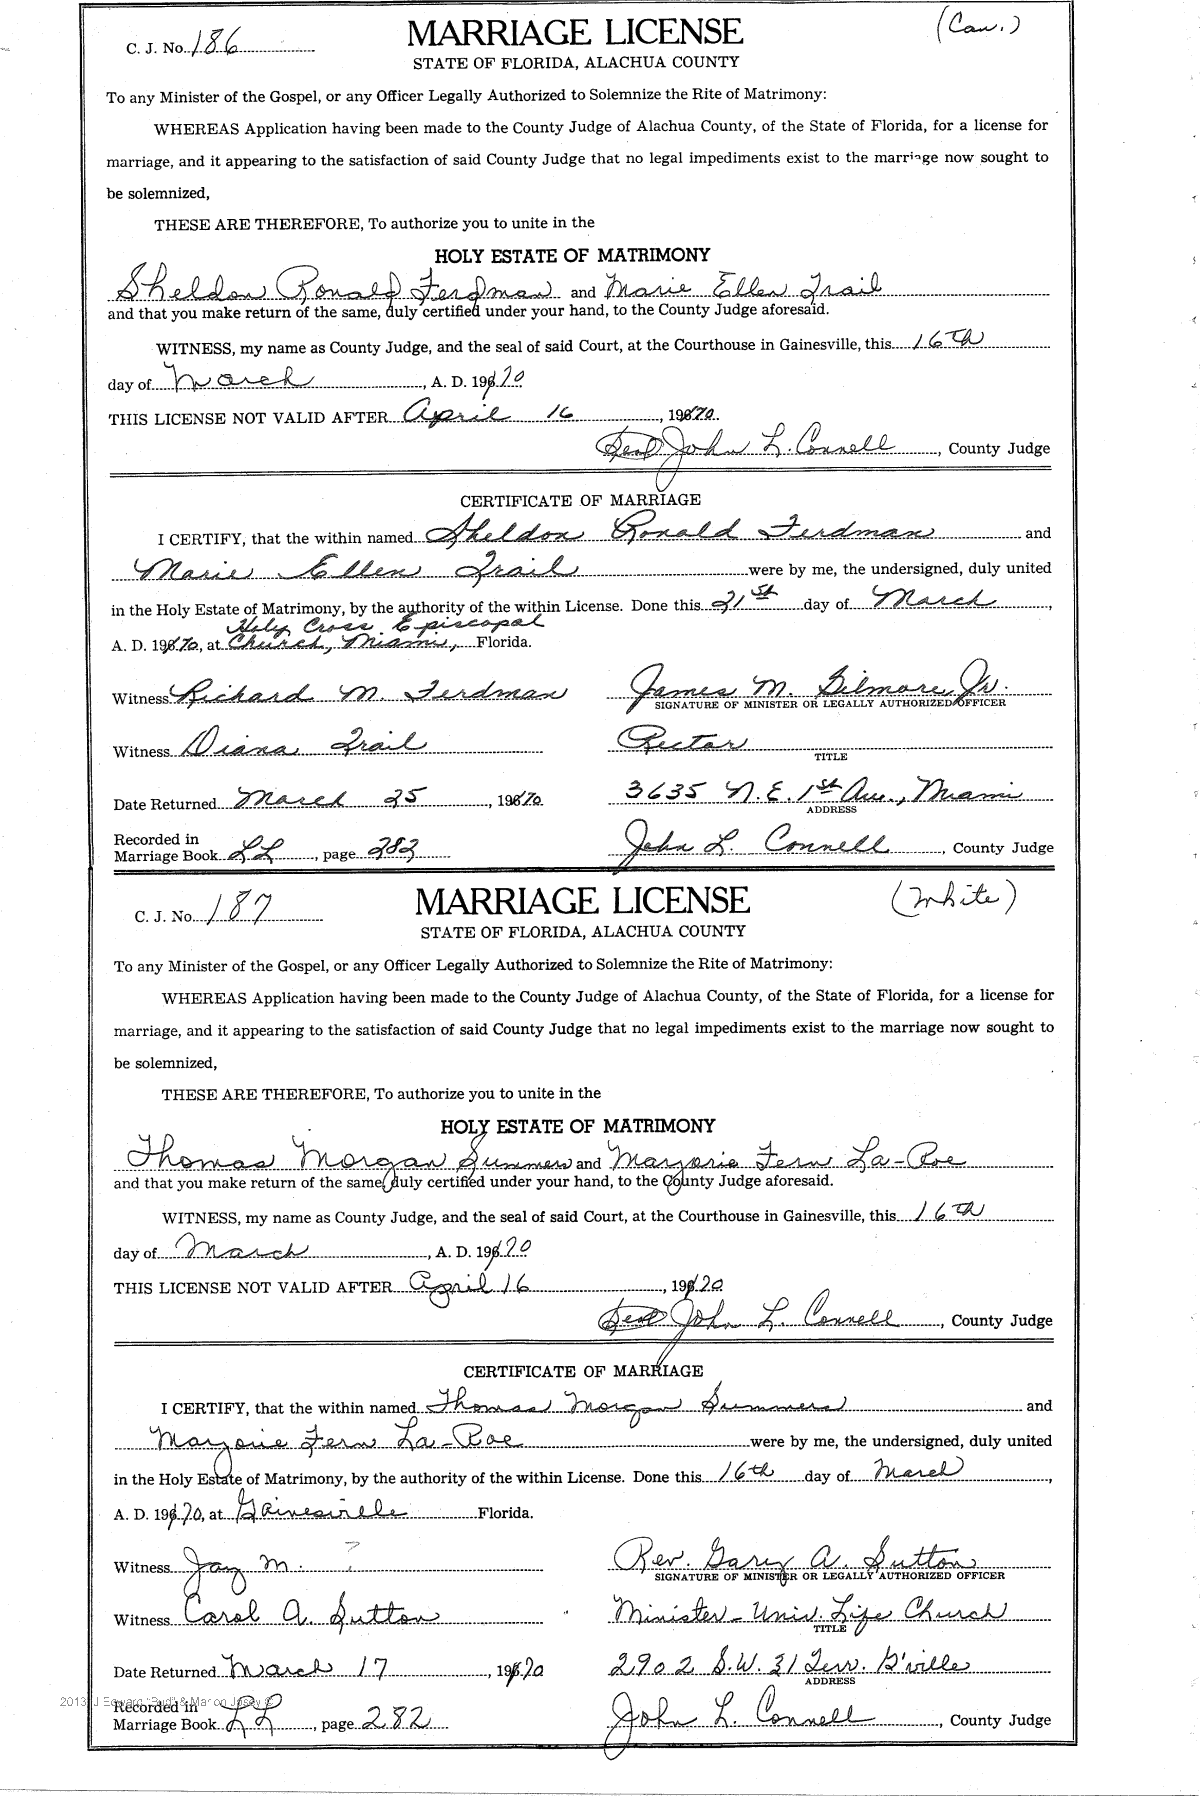 C. J. No. 186
MARRIAGE LICENSE
(Cau.)
STATE OF FLORIDA, ALACHUA COUNTY
To any Minister of the Gospel, or any Officer Legally Authorized to Solemnize the Rite of Matrimony:
WHEREAS Application having been made to the County Judge of Alachua County, of the State of Florida, for a license for
marriage, and it appearing to the satisfaction of said County Judge that no legal impediments exist to the marriage now sought to
be solemnized,
THESE ARE THEREFORE, To authorize you to unite in the
HOLY ESTATE OF MATRIMONY
Sheldon Ronald Ferdman and Marie Ellen Trail
and that you make return of the same, duly certified under your hand, to the County Judge aforesaid.
WITNESS, my name as County Judge, and the seal of said Court, at the Courthouse in Gainesville, this 16th
day of March, A. D. 1970
THIS LICENSE NOT VALID AFTER April 16, 1970.
Seal John L. Connell, County Judge
CERTIFICATE OF MARRIAGE
I CERTIFY, that the within named Sheldon Ronald Ferdman and
Marie Ellen Trail were by me, the undersigned, duly united
in the Holy Estate of Matrimony, by the authority of the within License. Done this 21st day of March,
Holy Cross Episcopal
A. D. 1970, at Church, Miami, Florida.
Witness Richard M. Ferdman James M. Gilmore, Jr.
SIGNATURE OF MINISTER OR LEGALLY AUTHORIZED OFFICER
Witness Diana Trail Rector
TITLE
Date Returned March 25, 1970 3635 N.E. 1st Ave., Miami
ADDRESS
Recorded in
Marriage Book LL, page 282 John L. Connell, County Judge
C. J. No. 187
MARRIAGE LICENSE
(White)
STATE OF FLORIDA, ALACHUA COUNTY
To any Minister of the Gospel, or any Officer Legally Authorized to Solemnize the Rite of Matrimony:
WHEREAS Application having been made to the County Judge of Alachua County, of the State of Florida, for a license for
marriage, and it appearing to the satisfaction of said County Judge that no legal impediments exist to the marriage now sought to
be solemnized,
THESE ARE THEREFORE, To authorize you to unite in the
HOLY ESTATE OF MATRIMONY
Thomas Morgan Summers and Marjorie Fern La-Roe
and that you make return of the same, duly certified under your hand, to the County Judge aforesaid.
WITNESS, my name as County Judge, and the seal of said Court, at the Courthouse in Gainesville, this 16th
day of March, A. D. 1970
THIS LICENSE NOT VALID AFTER April 16, 1970
Seal John L. Connell, County Judge
CERTIFICATE OF MARRIAGE
I CERTIFY, that the within named Thomas Morgan Summers and
Marjorie Fern La-Roe were by me, the undersigned, duly united
in the Holy Estate of Matrimony, by the authority of the within License. Done this 16th day of March,
A. D. 1970, at Gainesville Florida.
Witness Jay M. ? Rev. Gary A. Sutton
SIGNATURE OF MINISTER OR LEGALLY AUTHORIZED OFFICER
Witness Carol A. Sutton Minister - Univ. Life Church
TITLE
Date Returned March 17, 1970 2902 S.W. 31 Terr. G'ville
ADDRESS
Recorded in
Marriage Book LL, page 282 John L. Connell, County Judge